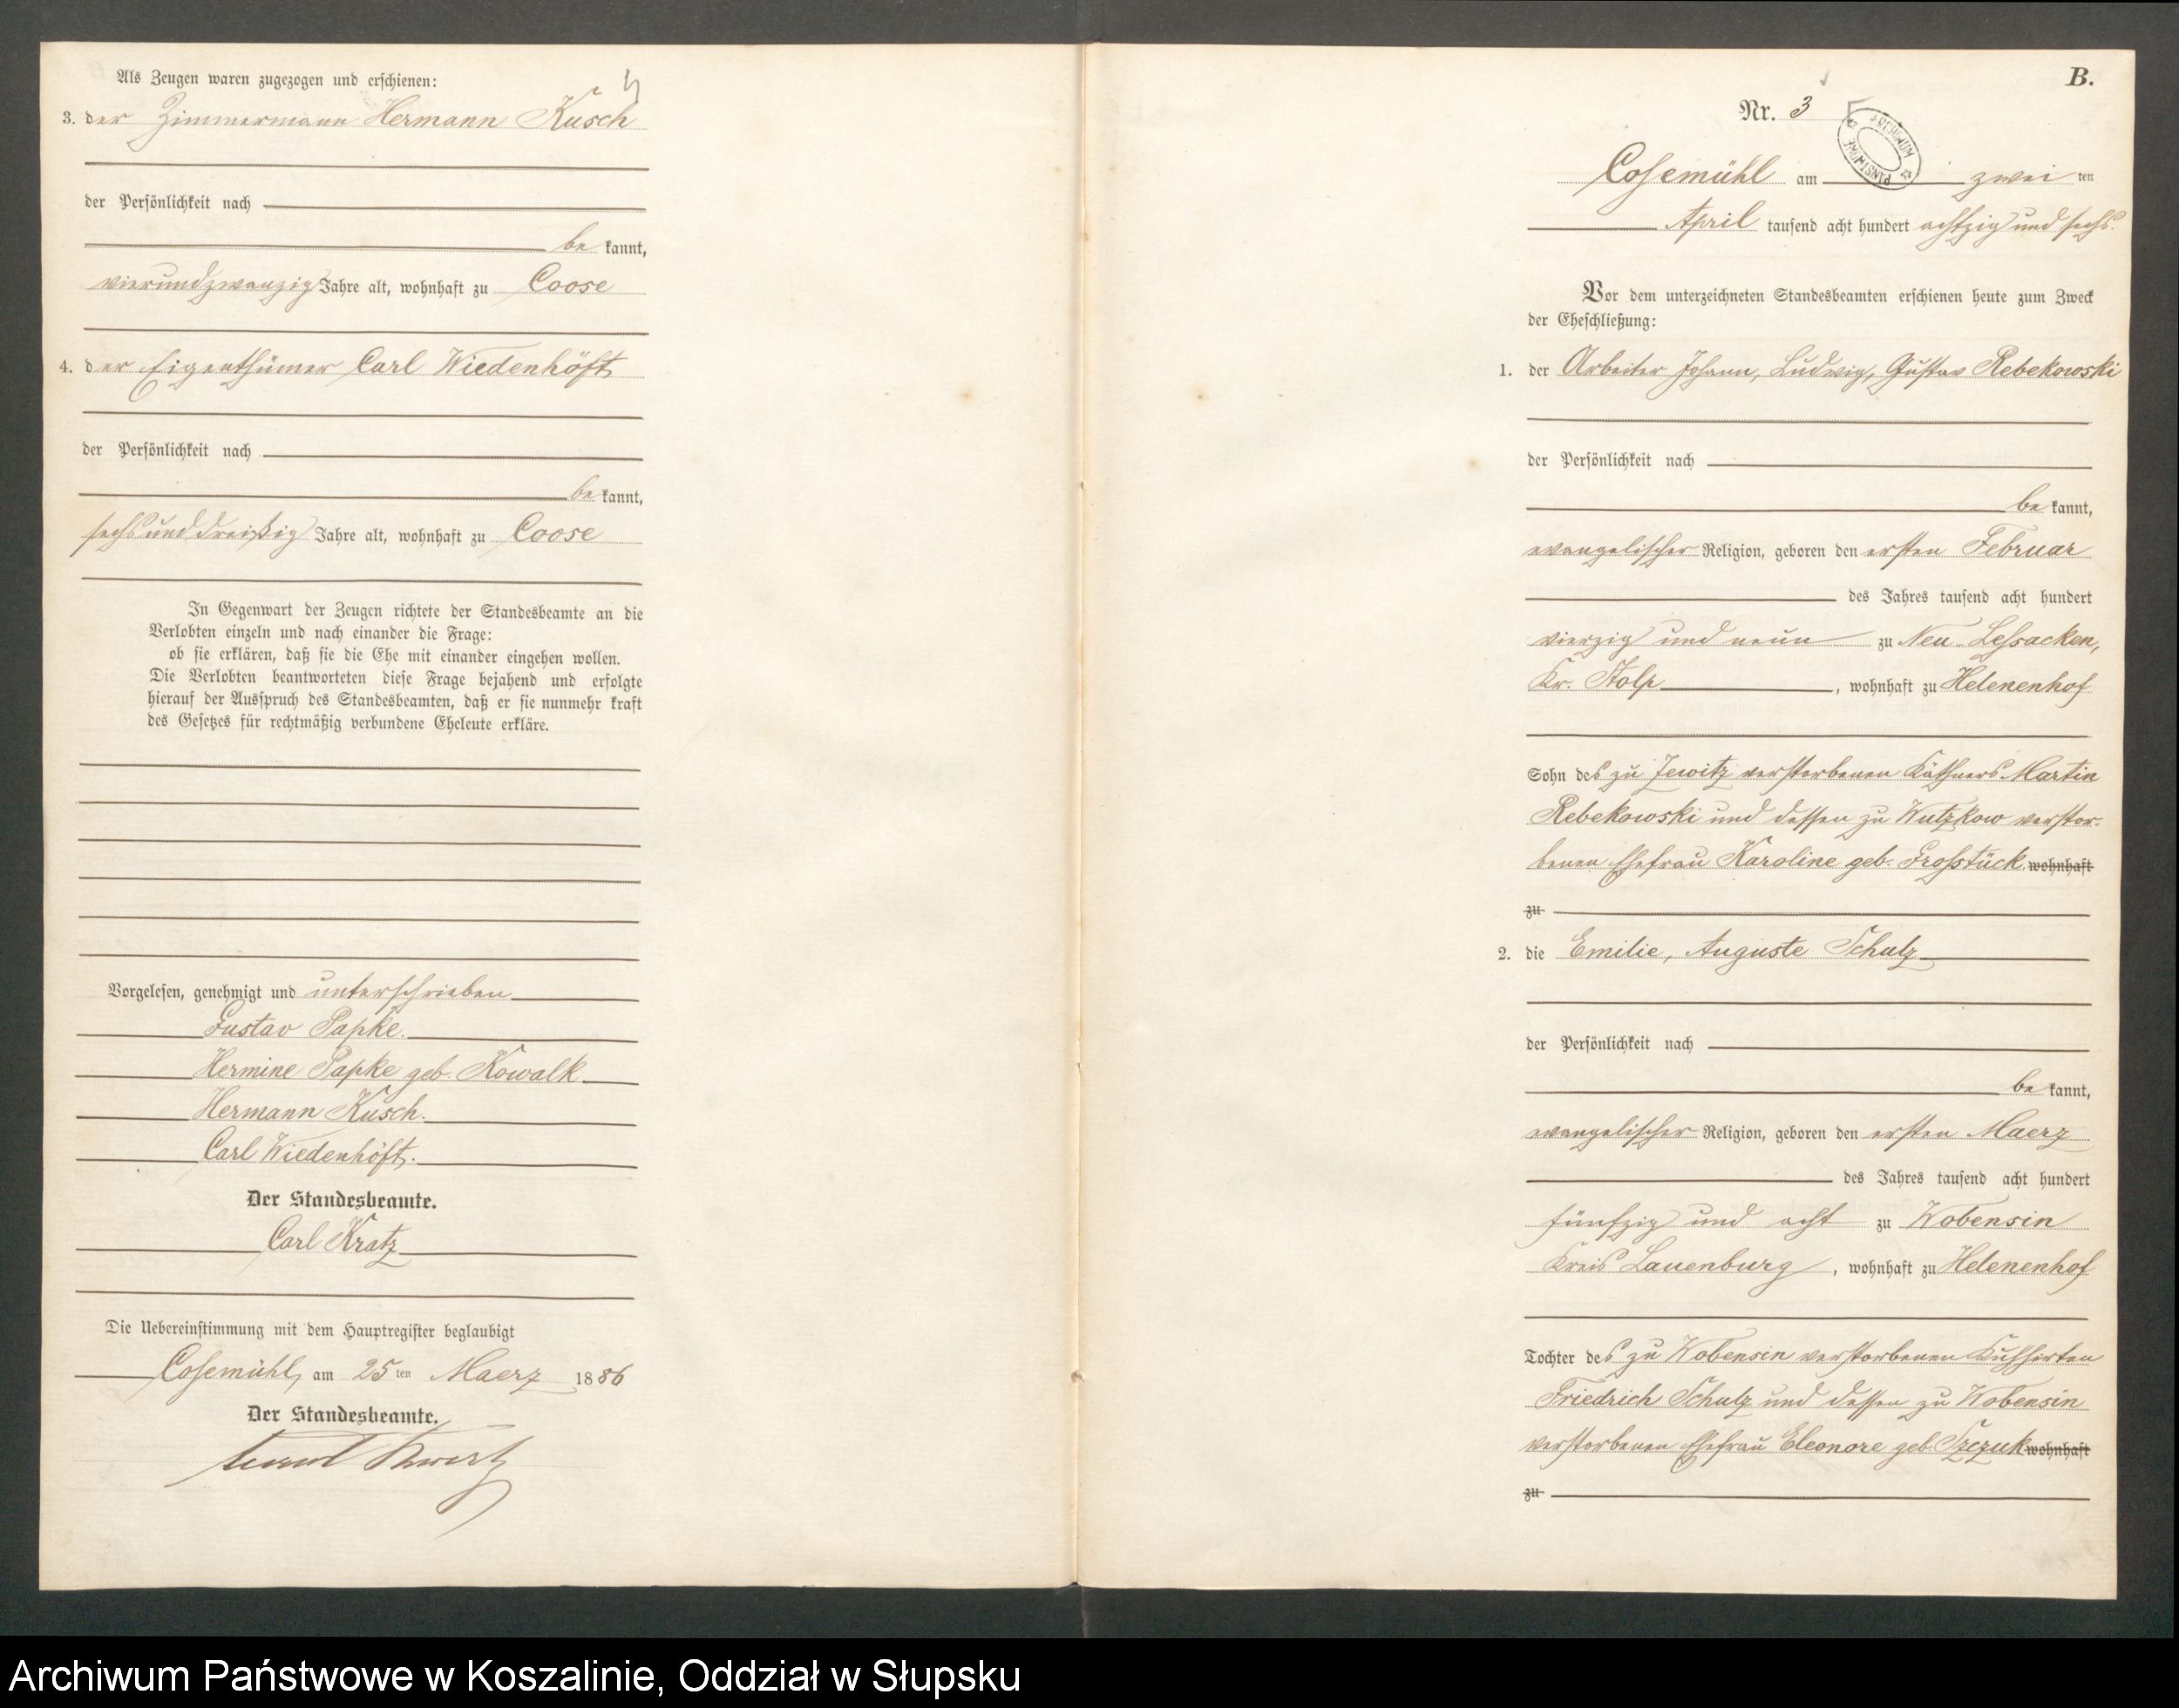 Als Zeugen waren zugezogen und erschienen:
3. der Zimmermann Hermann Kusch
der Persönlichkeit nach
be kannt,
vierundzwanzig Jahre alt, wohnhaft zu Coose
4. der Eigenthümer Carl Wiedenhöft
der Persönlichkeit nach
be kannt,
sechsunddreißig Jahre alt, wohnhaft zu Coose
In Gegenwart der Zeugen richtete der Standesbeamte an die
Verlobten einzeln und nach einander die Frage:
ob sie erklären, daß sie die Ehe mit einander eingehen wollen.
Die Verlobten beantworteten diese Frage bejahend und erfolgte
hierauf der Ausspruch des Standesbeamten, daß er sie nunmehr kraft
des Gesetzes für rechtmäßig verbundene Eheleute erkläre.
Vorgelesen, genehmigt und unterschrieben
Gustav Papke.
Hermine Papke geb. Kowalk
Hermann Kusch.
Carl Wiedenhöft.
Der Standesbeamte.
Carl Kratz
Die Uebereinstimmung mit dem Hauptregister beglaubigt
Cosemühl, am 25 ten Maerz 1886
Der Standesbeamte.
B.
Nr. 3
ARCHIWUM PAŃSTWOWE
Cosemühl am zwei ten
April tausend acht hundert achtzig und sechs.
Vor dem unterzeichneten Standesbeamten erschienen heute zum Zweck
der Eheschließung:
1. der Arbeiter Johann, Ludwig, Gustav Rebekowski
der Persönlichkeit nach
be kannt,
evangelischer Religion, geboren den ersten Februar
des Jahres tausend acht hundert
vierzig und neun zu Neu-Lessacken,
Kr. Stolp, wohnhaft zu Helenenhof
Sohn des zu Jewitz verstorbenen Käthners Martin
Rebekowski und dessen zu Wutzkow verstor-
benen Ehefrau Karoline geb. Grosstück wohnhaft
zu
2. die Emilie, Auguste Schulz
der Persönlichkeit nach
be kannt,
evangelischer Religion, geboren den ersten Maerz
des Jahres tausend acht hundert
fünfzig und acht zu Wobensin
Kreis Lauenburg, wohnhaft zu Helenenhof
Tochter des zu Wobensin verstorbenen Kuhhirten
Friedrich Schulz und dessen zu Wobensin
verstorbenen Ehefrau Eleonore geb. Szczuk wohnhaft
zu
Archiwum Państwowe w Koszalinie, Oddział w Słupsku